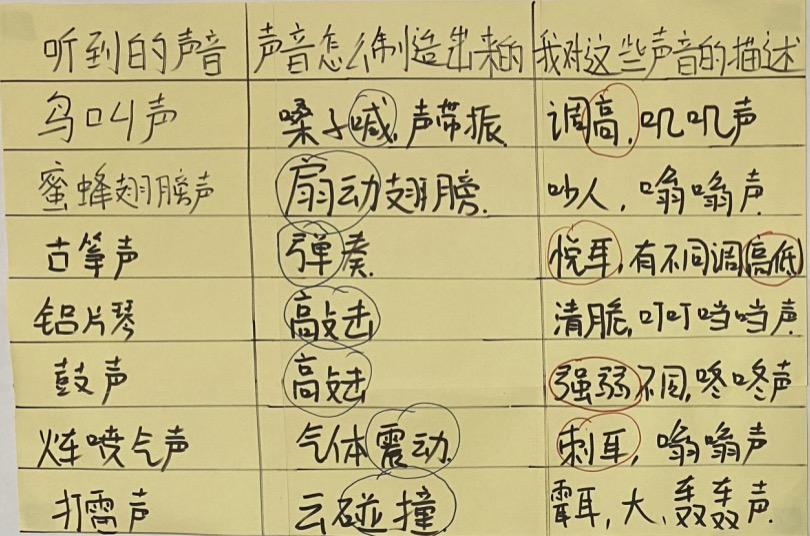 听到的声音 声音怎么制造出来的 我对这些声音的描述
鸟叫声 嗓子喊,声带振. 调高,叽叽声
蜜蜂翅膀声 扇动翅膀. 吵人,嗡嗡声.
古筝声 弹奏. 悦耳,有不同调高低
铝片琴 敲击 清脆,叮叮当当声.
鼓声 敲击 强弱不同,咚咚声
火车喷气声 气体震动. 刺耳,嗡嗡声
打雷声 云碰撞. 震耳,大,轰轰声.